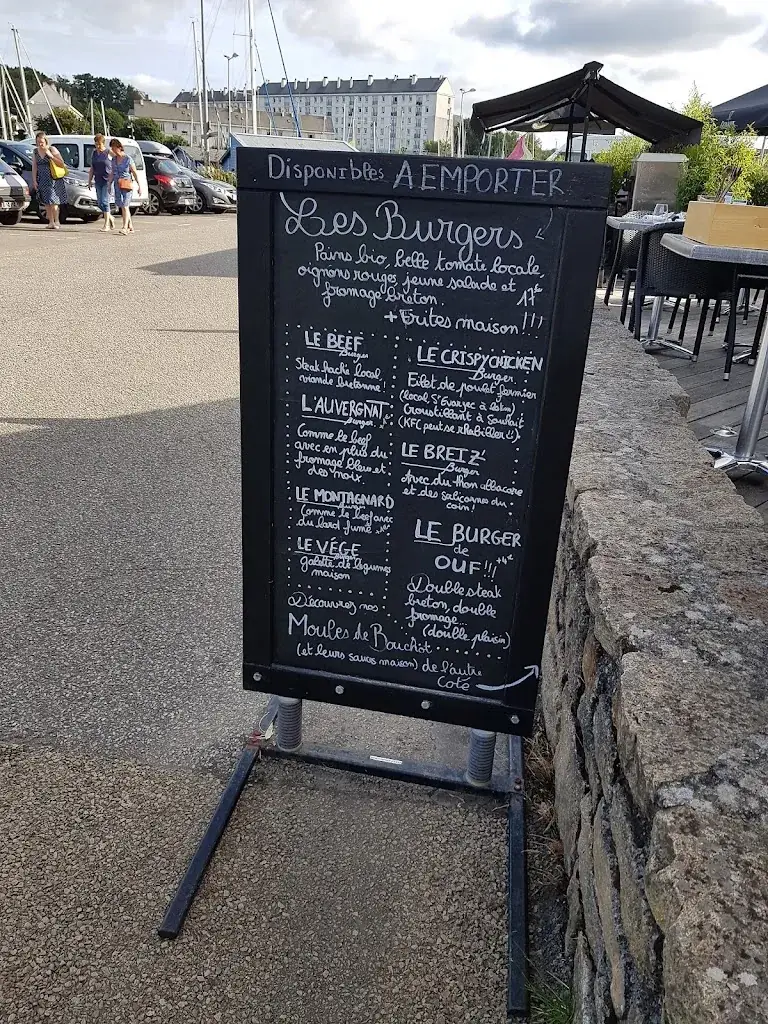 Disponibles A EMPORTER
Les Burgers
Pains bio, belle tomate locale,
oignons rouges, jeune salade et
fromage breton. 17€
+ Frites maison !!!
LE BEEF
Burger
Steak haché local
viande bretonne !
L'AUVERGNAT
Burger
Comme le beef
avec en plus du
fromage bleu et
des noix.
LE MONTAGNARD
Burger
Comme le beef avec
du lard fumé
LE VÉGÉ
Burger
galette de légumes
maison
LE CRISPY CHICKEN
Burger
Filet de poulet fermier
(local St Evarzec à
Croustillant à Souhait
(KFC peut se rhabiller !!)
LE BREIZ'
Burger
Avec du thon albacore
et des salicornes du
coin !
LE BURGER
de
OUF !!! +4€
Double steak
breton, double
fromage...
(double plaisir)
Découvrez nos
Moules de Bouchot
(et leurs sauces maison) de l'autre
Coté